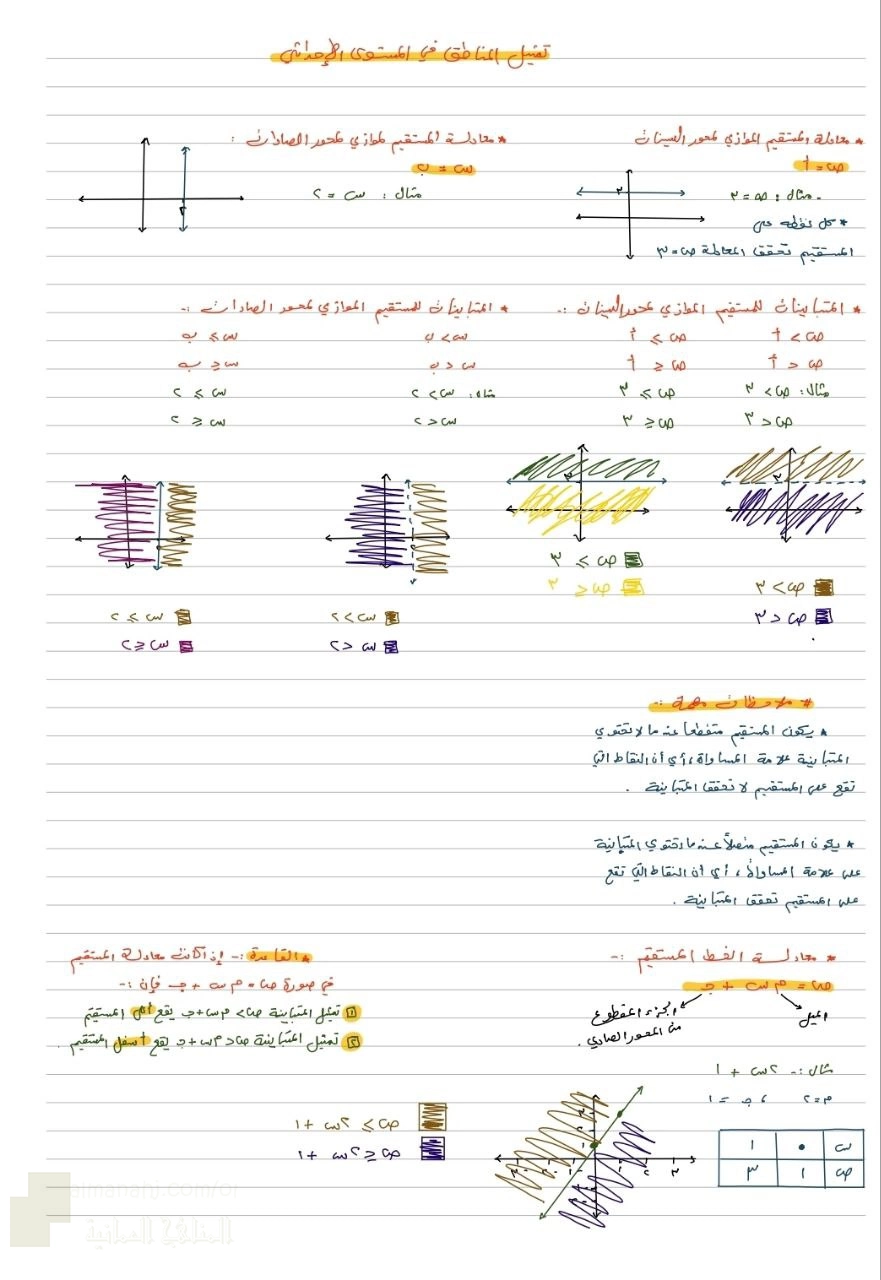 تمثيل المناطق في المستوى الإحداثي
* معادلة المستقيم الموازي لمحور السينات
ص = أ
مثال : ص = ٣
* كل نقطة على
المستقيم تحقق المعادلة ص = ٣
٣
* معادلة المستقيم الموازي لمحور الصادات :
س = ب
مثال : س = ٢
٢
* المتباينات للمستقيم الموازي لمحور السينات :-
ص > أ ص ≥ أ
ص < أ ص ≤ أ
مثال : ص > ٣ ص ≥ ٣
ص < ٣ ص ≤ ٣
٣
٣
ص > ٣
ص < ٣
ص ≥ ٣
ص ≤ ٣
* المتباينات للمستقيم الموازي لمحور الصادات :-
س > ب س ≥ ب
س < ب س ≤ ب
مثال : س > ٢ س ≥ ٢
س < ٢ س ≤ ٢
٢
٢
س > ٢
س < ٢
س ≥ ٢
س ≤ ٢
# ملاحظات مهمة :-
* يكون المستقيم متقطعاً عندما لا تحتوي
المتباينة علامة المساواة ، أي أن النقاط التي
تقع على المستقيم لا تحقق المتباينة .
* يكون المستقيم متصلاً عندما تحتوي المتباينة
على علامة المساواة ، أي أن النقاط التي تقع
على المستقيم تحقق المتباينة .
* معادلة الخط المستقيم :-
ص = م س + جـ
الميل
الجزء المقطوع
من المحور الصادي .
مثال :- ٢س + ١
م = ٢ ، جـ = ١
س ٠ ١
ص ١ ٣
* القاعدة :- إذا كانت معادلة المستقيم
في صورة ص = م س + جـ فإن :-
١ تمثيل المتباينة ص > م س + جـ يقع أعلى المستقيم
٢ تمثيل المتباينة ص < م س + جـ يقع أسفل المستقيم .
ص ≥ ٢س + ١
ص ≤ ٢س + ١
٣
٢
١
٣ ٢ ١ ١ ٢ ٣
almanahj.com/om
المناهج العمانية